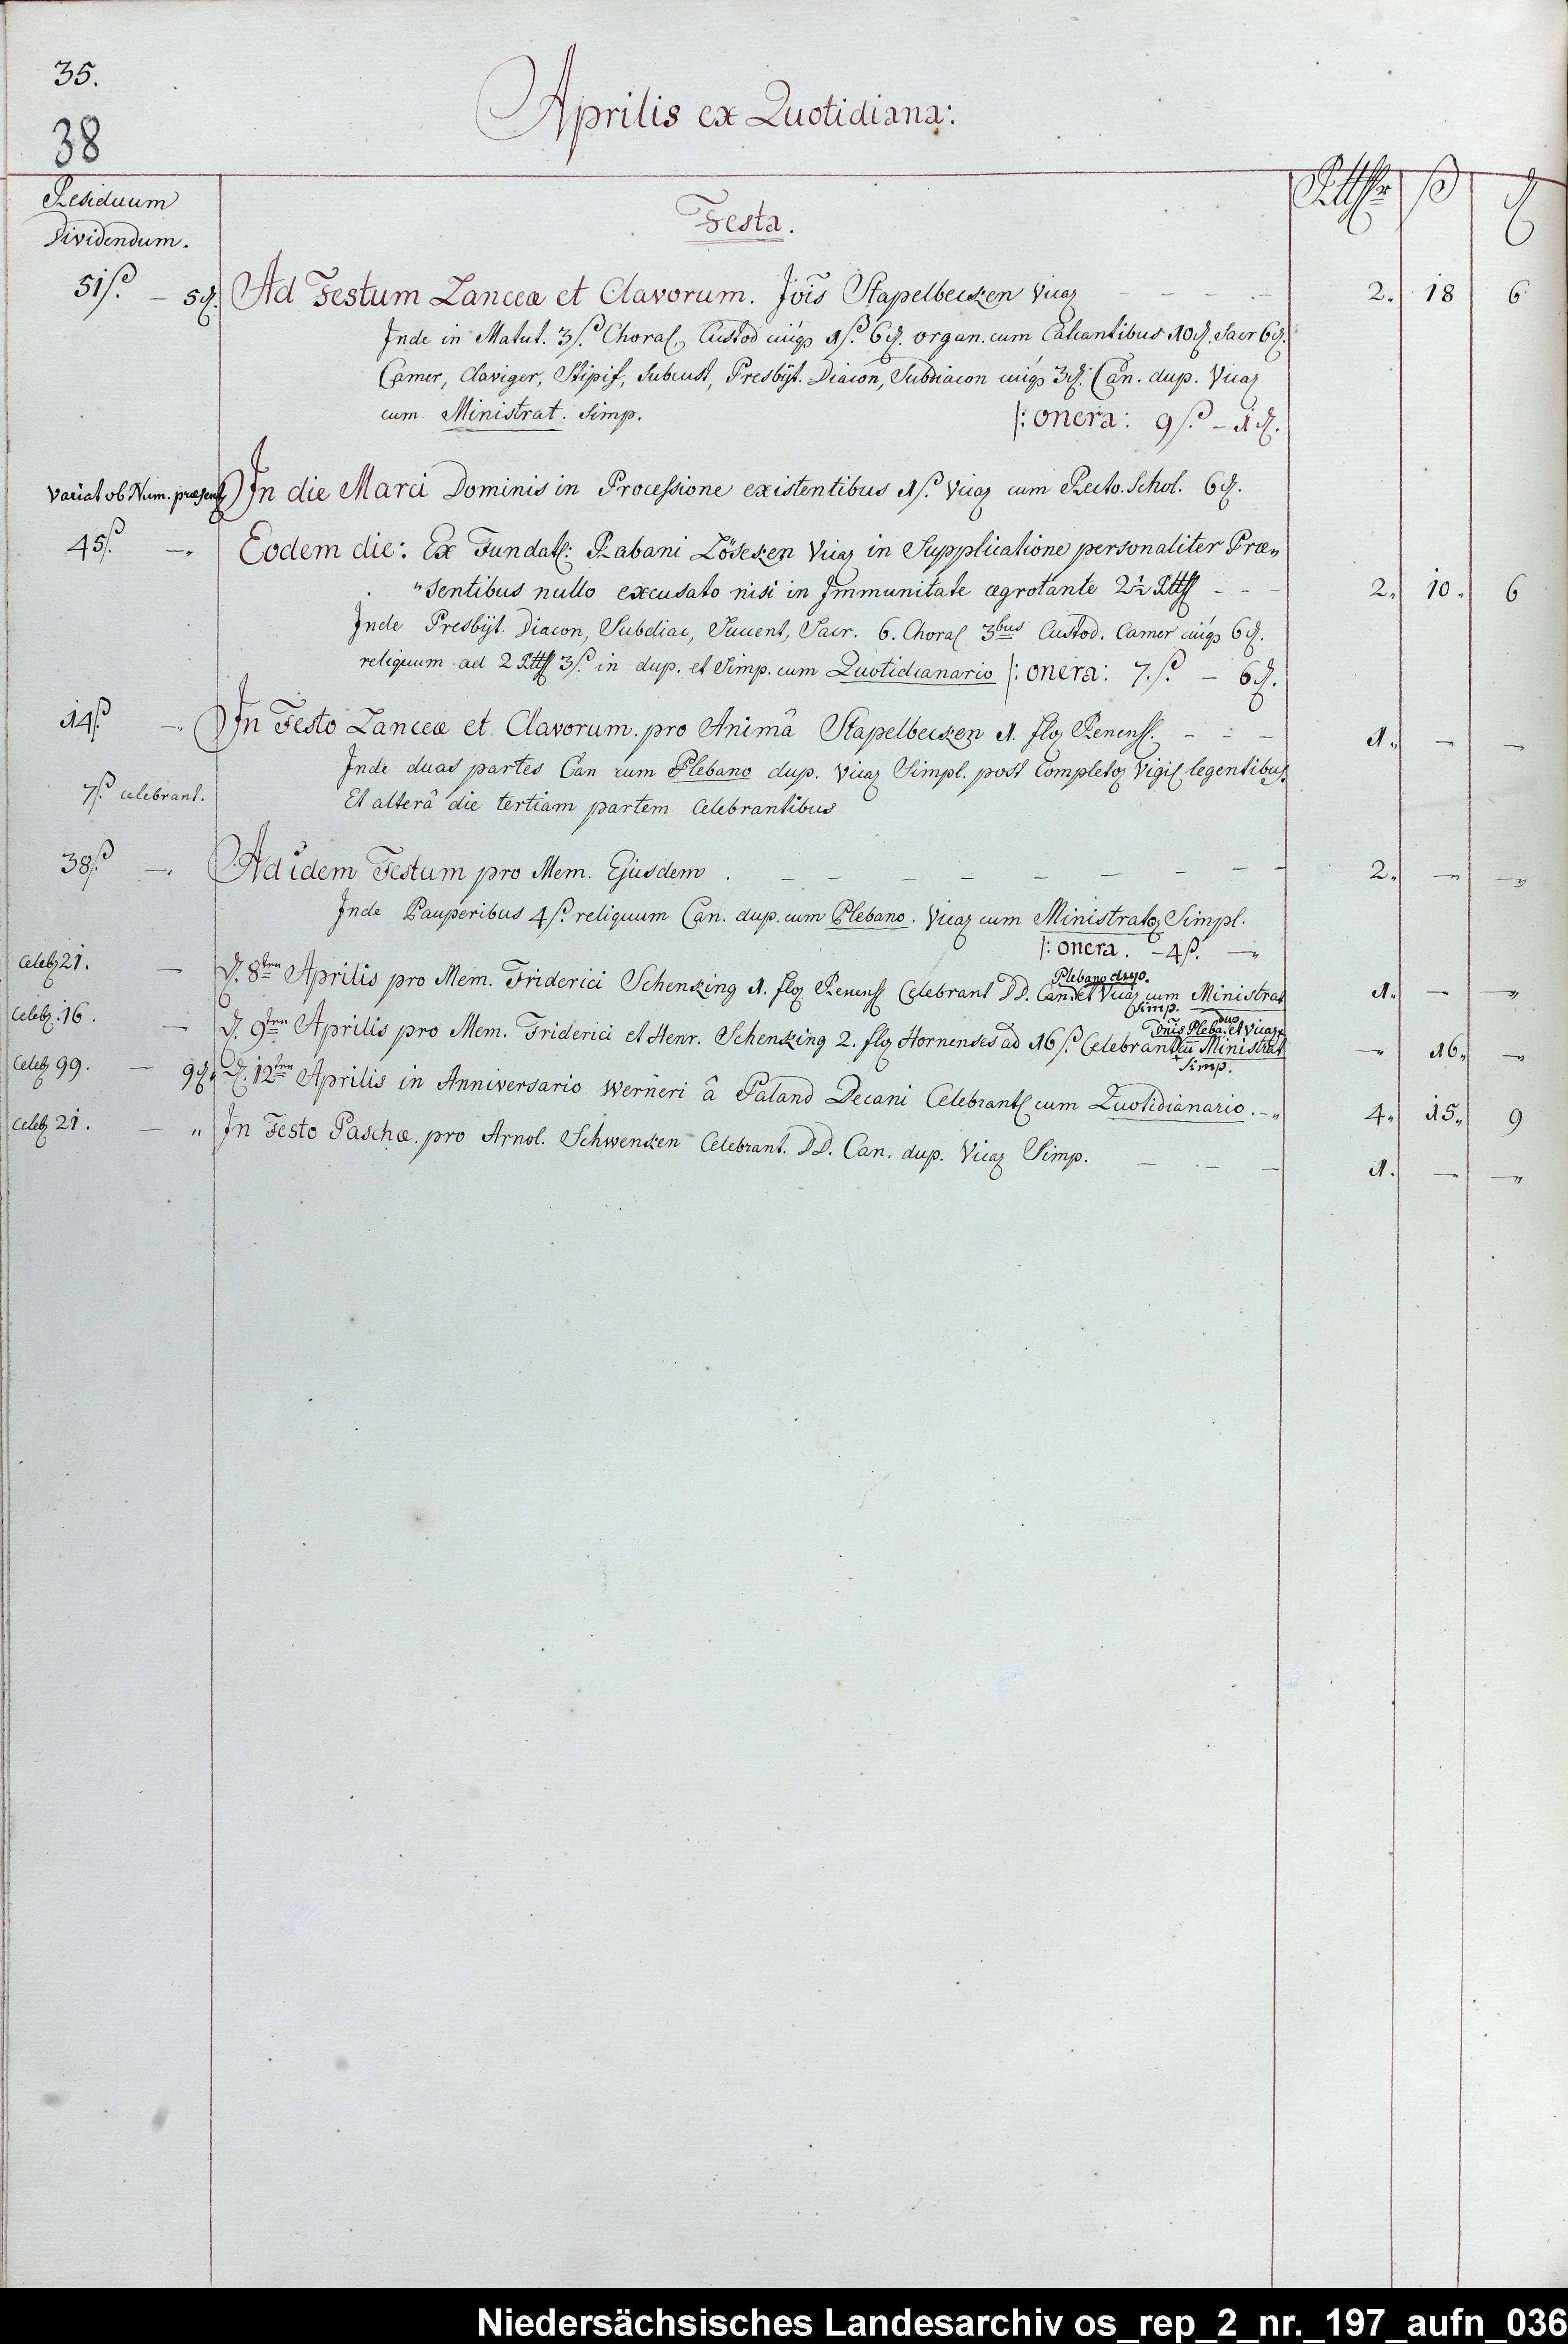 35.
38
Aprilis ex Quotidiana:
Residuum
Dividendum.
Festa.
Rtthlr ß ₰
51ß. – 5₰. Ad Festum Lanceæ et Clavorum. Jōis Stapelbecken Vicar – – – – 2. 18 6
Inde in Matut. 3ß. Choral, Custod cuiq 1ß. 6₰. organ. cum Calcantibus 10₰. Sacr 6₰.
Camer, Claviger, Stipif, Subcust, Presbÿt. Diacon, Subdiacon cuiq 3₰. Can. dup. Vicar
cum Ministrat. Simp. /: onera: 9ß. – 1₰.
Variat ob Num. præsent In die Marci Dominis in Processione existentibus 1ß. Vicar cum Recto. Schol. 6₰.
45ß. –„ Eodem die: Ex Fundat: Rabani Löseken Vicar in Supplicatione personaliter Præ„
„sentibus nullo excusato nisi in Immunitate ægrotante 2½ Rtthl – – – 2. 10. 6
Inde Presbÿt. Diacon, Subdiac, Succent, Sacr. 6. Choral 3bus Custod. Camer cuiq 6₰.
reliquum ad 2 Rtthl 3ß. in dup. et Simp. cum Quotidianario /: onera: 7.ß. – 6₰.
14ß. –„ In Festo Lanceæ et Clavorum. pro Animâ Stapelbecken 1. flor Renens. – – – 1. – –
Inde duas partes Can cum Plebano dup. Vicar Simpl. post Completor Vigil legentibus.
7ß celebrant. Et alterâ die tertiam partem Celebrantibus
38ß. –„ Ad idem Festum pro Mem. Ejusdem . – – – – – – – 2. – –
Inde Pauperibus 4ß. reliquum Can. dup. cum Plebano. Vicar cum Ministrator Simpl.
/: onera. – 4ß. –„
Celebr 21. – D. 8ten Aprilis pro Mem. Friderici Schencking 1. flor Renens Celebrant DD. Can. et Vicar cum Ministrat 1. – –
Plebano duo.
Simp.
Celebr. 16. – D. 9ten Aprilis pro Mem. Friderici et Henr. Schencking 2. flor Hornenses ad 16ß. Celebrant cū Ministrat – 16. –
Dnis Pleba. et Vicar
dup
Simp.
Celebr 99. – 9₰. D. 12ten Aprilis in Anniversario Werneri â Paland Decani Celebrant cum Quotidianario. –„ 4. 15. 9
Celebr 21. – „ In Festo Paschæ. pro Arnol. Schwencken Celebrant. DD. Can. dup. Vicar Simp. – – – 1. – –
Niedersächsisches Landesarchiv os_rep_2_nr._197_aufn_036